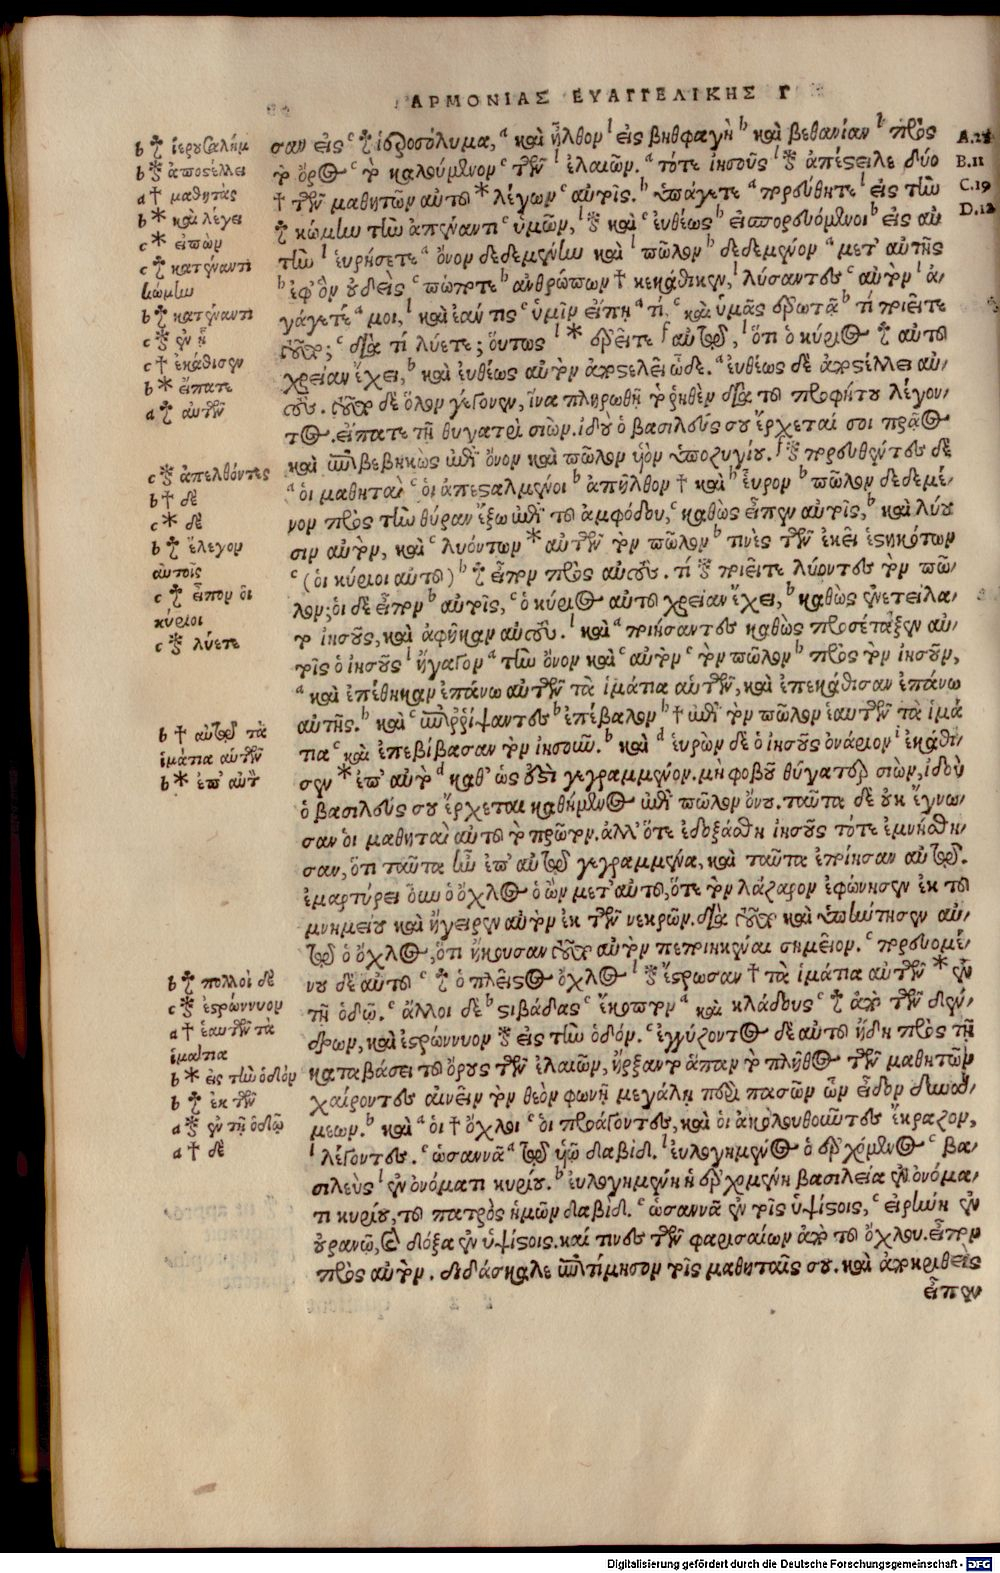 ΑΡΜΟΝΙΑΣ ΕΥΑΓΓΕΛΙΚΗΣ Γ
σαν εἰς ᶜ ☨ ἱεροσόλυμα, ᵃ καὶ ἦλθον ˡ εἰς βηθφαγὴ ᵇ καὶ βεθανίαν ˡ πρὸς
τὸ ὄρος ᶜ τὸ καλούμενον ᶜ τῶν ˡ ἐλαιῶν. ᵃ τότε ἰησοῦς ˡ ※ ἀπέστειλε δύο
† τῶν μαθητῶν αὐτοῦ * λέγων ᶜ αὐτοῖς. ᵇ ὑπάγετε ᵃ πορεύθητε ˡ εἰς τὴν
☨ κώμην τὴν ἀπέναντι ᶜ ὑμῶν, ˡ ※ καὶ ᶜ εὐθέως ᵇ εἰσπορευόμενοι ᵇ εἰς αὐ
τὴν ˡ εὑρήσετε ᵃ ὄνον δεδεμένην καὶ ˡ πῶλον ᵇ δεδεμένον ᵃ μετ' αὐτῆς
ᵇ ἐφ' ὃν οὐδεὶς ᶜ πώποτε ᵇ ἀνθρώπων † κεκάθικεν, ˡ λύσαντες ᶜ αὐτὸν ˡ ἀ-
γάγετέ ᵃ μοι, ˡ καὶ ἐάν τις ᶜ ὑμῖν εἴπῃ ᵃ τί, ᶜ καὶ ὑμᾶς ἐρωτᾷ ᵇ τί ποιεῖτε
τοῦτο; ᶜ διὰ τί λύετε; οὕτως ˡ * ἐρεῖτε ᶠ αὐτῷ, ˡ ὅτι ὁ κύριος ☨ αὐτοῦ
χρείαν ἔχει, ᵇ καὶ εὐθέως αὐτὸν ἀποστελεῖ ὧδε. ᵃ εὐθέως δὲ ἀποστέλλει αὐ-
τούς. τοῦτο δὲ ὅλον γέγονεν, ἵνα πληρωθῇ τὸ ῥηθὲν διὰ τοῦ προφήτου λέγον-
τος. εἴπατε τῇ θυγατρὶ σιών. ἰδοὺ ὁ βασιλεύς σου ἔρχεταί σοι πρᾷος
καὶ ἐπιβεβηκὼς ἐπὶ ὄνον καὶ πῶλον υἱὸν ὑποζυγίου. ˡ ※ πορευθέντες δὲ
ᵃ οἱ μαθηταὶ ᶜ οἱ ἀπεσταλμένοι ᵇ ἀπῆλθον † καὶ ʰ εὗρον ᵇ πῶλον δεδεμέ-
νον πρὸς τὴν θύραν ἔξω ἐπὶ τοῦ ἀμφόδου, ᶜ καθὼς εἶπεν αὐτοῖς, ᵇ καὶ λύου
σιν αὐτὸν, καὶ ᶜ λυόντων * αὐτῶν τὸν πῶλον ᵇ τινὲς τῶν ἐκεῖ ἑστηκότων
ᶜ (οἱ κύριοι αὐτοῦ) ᵇ ☨ εἶπον πρὸς αὐτούς. τί ※ ποιεῖτε λύοντες τὸν πῶ-
λον; οἱ δὲ εἶπον ᵇ αὐτοῖς, ᶜ ὁ κύριος αὐτοῦ χρείαν ἔχει, ᵇ καθὼς ἐνετείλα-
το ἰησοῦς, καὶ ἀφῆκαν αὐτούς. ˡ καὶ ᵃ ποιήσαντες καθὼς προσέταξεν αὐ-
τοῖς ὁ ἰησοῦς ˡ ἤγαγον ᵃ τὴν ὄνον καὶ ᶜ αὐτὸν ᶜ τὸν πῶλον ᵇ πρὸς τὸν ἰησοῦν,
ᵃ καὶ ἐπέθηκαν ἐπάνω αὐτῶν τὰ ἱμάτια αὑτῶν, καὶ ἐπεκάθισαν ἐπάνω
αὐτῆς. ᵇ καὶ ᶜ ἐπιῤῥίψαντες ᵇ ἐπέβαλον ᵇ † ἐπὶ τὸν πῶλον ἑαυτῶν τὰ ἱμά
τια ᶜ καὶ ἐπεβίβασαν τὸν ἰησοῦν. ᵇ καὶ ᵈ εὑρὼν δὲ ὁ ἰησοῦς ὀνάριον ˡ ἐκάθι-
σεν * ἐπ' αὐτὸ ᵈ καθ' ὡς ἐστὶ γεγραμμένον. μὴ φοβοῦ θύγατερ σιὼν, ἰδοὺ
ὁ βασιλεύς σου ἔρχεται καθήμενος ἐπὶ πῶλον ὄνου. ταῦτα δὲ οὐκ ἔγνω-
σαν οἱ μαθηταὶ αὐτοῦ τὸ πρῶτον. ἀλλ' ὅτε ἐδοξάσθη ἰησοῦς τότε ἐμνήσθη-
σαν, ὅτι ταῦτα ἦν ἐπ' αὐτῷ γεγραμμένα, καὶ ταῦτα ἐποίησαν αὐτῷ.
ἐμαρτύρει οὖν ὁ ὄχλος ὁ ὢν μετ' αὐτοῦ, ὅτε τὸν λάζαρον ἐφώνησεν ἐκ τοῦ
μνημείου καὶ ἤγειρεν αὐτὸν ἐκ τῶν νεκρῶν. διὰ τοῦτο καὶ ὑπήντησεν αὐ-
τῷ ὁ ὄχλος, ὅτι ἤκουσαν τοῦτο αὐτὸν πεποιηκέναι σημεῖον. ᶜ πορευομέ-
νου δὲ αὐτοῦ ᶜ ☨ ὁ πλεῖστος ὄχλος ˡ ※ ἔστρωσαν † τὰ ἱμάτια αὐτῶν * ἐν
τῇ ὁδῷ. ᶜ ἄλλοι δὲ ᵇ στιβάδας ᶜ ἔκοπτον ᵃ καὶ κλάδους ᶜ ☨ ἀπὸ τῶν δέν-
δρων, καὶ ἐστρώννυον ※ εἰς τὴν ὁδόν. ᶜ ἐγγίζοντος δὲ αὐτοῦ ἤδη πρὸς τῇ
καταβάσει τοῦ ὄρους τῶν ἐλαιῶν, ἤρξαντο ἅπαν τὸ πλῆθος τῶν μαθητῶν
χαίροντες αἰνεῖν τὸν θεὸν φωνῇ μεγάλῃ περὶ πασῶν ὧν εἶδον δυνά-
μεων. ᵇ καὶ ᵃ οἱ † ὄχλοι ᶜ οἱ προάγοντες, καὶ οἱ ἀκολουθοῦντες ἔκραζον,
ˡ λέγοντες. ᶜ ὡσαννᾶ ᵃ τῷ υἱῷ δαβίδ. ˡ εὐλογημένος ὁ ἐρχόμενος ᶜ βα-
σιλεὺς ˡ ἐν ὀνόματι κυρίου. ᵇ εὐλογημένη ἡ ἐρχομένη βασιλεία ἐν ὀνόμα-
τι κυρίου, τοῦ πατρὸς ἡμῶν δαβίδ. ᶜ ὡσαννᾶ ἐν τοῖς ὑψίστοις, ᶜ εἰρήνη ἐν
οὐρανῷ, καὶ δόξα ἐν ὑψίστοις. καί τινες τῶν φαρισαίων ἀπὸ τοῦ ὄχλου. εἶπον
πρὸς αὐτὸν. διδάσκαλε ἐπιτίμησον τοῖς μαθηταῖς σου. καὶ ἀποκριθεὶς
εἶπεν
b ☨ ἱερουσαλήμ
b ※ ἀποστέλλει
a † μαθητὰς
b * καὶ λέγει
c * εἰπὼν
c ☨ κατέναντι
κώμην
b ☨ κατέναντι
c ※ ἐν ᾗ
c † ἐκάθισεν
b * εἴπατε
a ☨ αὐτῶν
c ※ ἀπελθόντες
b † δὲ
c * δὲ
b ☨ ἔλεγον
αὐτοῖς
c ☨ εἶπον οἱ
κύριοι
c ※ λύετε
b † αὐτῷ τὰ
ἱμάτια αὑτῶν
b * ἐπ' αὐτῷ
b ☨ πολλοὶ δὲ
c ※ ἐστρώννυον
a † ἑαυτῶν τὰ
ἱμάτια
b * εἰς τὴν ὁδὸν
b ☨ ἐκ τῶν
a ※ ἐν τῇ ὁδῷ
a † δὲ
A.21
B.11
C.19
D.12
Digitalisierung gefördert durch die Deutsche Forschungsgemeinschaft - DFG